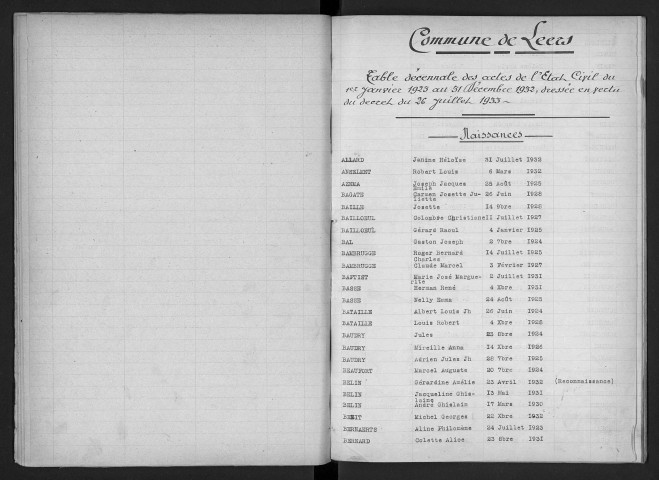 Commune de Leers
Table décennale des actes de l'Etat Civil du
1er Janvier 1923 au 31 Décembre 1932, dressée en vertu
du décret du 26 Juillet 1933
Naissances
ALLARD Janine Héloïse 31 Juillet 1932
Robert Louis 6 Mars 1932
Joseph Jacques 28 Août 1928
Emile
BAGATE Carmen Josette Ju- 26 Juin 1928
liette
BAILLE Josette 14 8bre 1928
BAILLOEUL Colombée Christiane 11 Juillet 1927
BAILLOEUL Gérard Raoul 4 Janvier 1925
BAL Gaston Joseph 2 7bre 1924
BAMBRUGGE Roger Bernard 14 Juillet 1925
Charles
BAMBRUGGE Claude Marcel 3 Février 1927
BAPTIST Marie José Margue- 2 Juillet 1931
rite
BASSE Herman René 4 Xbre 1931
BASSE Nelly Emma 24 Août 1928
BATAILLE Albert Louis Jh 26 Juin 1924
BATAILLE Louis Robert 4 Xbre 1928
BAUDRY Jules 8bre 1924
BAUDRY Mireille Anna 14 Xbre 1926
BAUDRY Adrien Jules Jh 28 7bre 1925
BEAUFORT Marcel Auguste 20 7bre 1924
BELIN Gérardine Amélie 23 Avril 1932 (Reconnaissance)
BELIN Jacqueline Ghis- 13 Mai 1931
laine
BELIN André Ghislain 17 Mars 1930
BENIT Michel Georges 22 Xbre 1932
BERNAERTS Aline Philomène 24 Juillet 1923
BERNARD Colette Alice 23 8bre 1931